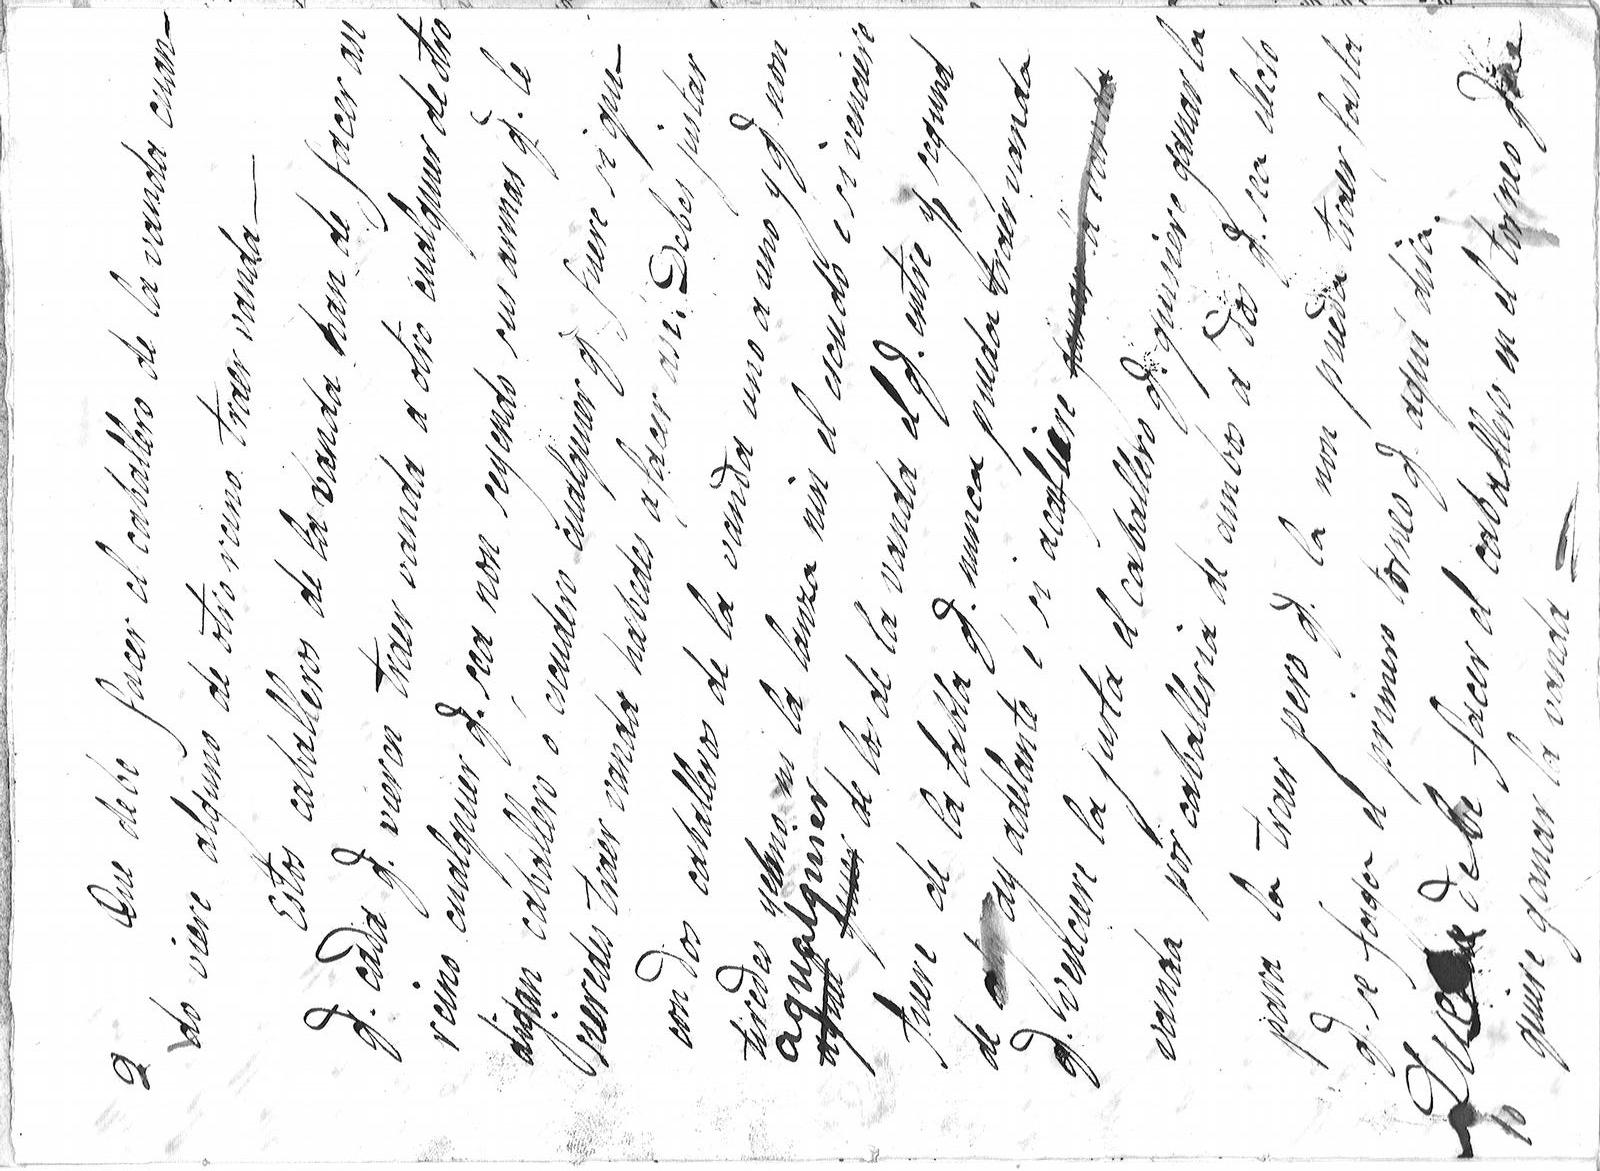 9 Que debe facer el caballero de la vanda cuan-
do viere alguno de otro reino traer vanda—
Estos caballeros de la vanda han de facer an
q. cada q. vieren traer vanda a otro cualquier de otro
reino cualquier q. sea non seyendo sus armas q. le
digan caballero o escudero cualquier q. fuere si qui-
sieredes traer vanda habedes a facer asi. Debes justar
con dos caballeros de la vanda uno a uno y q non
tiredes yelmo ni la lanza nin el escudo e si venciere
aqualquier
de los de la vanda el q. entre y segund
fuere de la tabla q. nunca pueda traer vanda
de ay adelante é si acaeciere
q. venciere la justa el caballero q. quisiere ganar la
vanda por caballeria de ambos a dos q. sea electo
para la traer pero q. la non pueda traer fasta
q. se faga el primero torneo q. aqui dira.
10 Que debe facer el caballero en el torneo que
quire ganar la vanda—